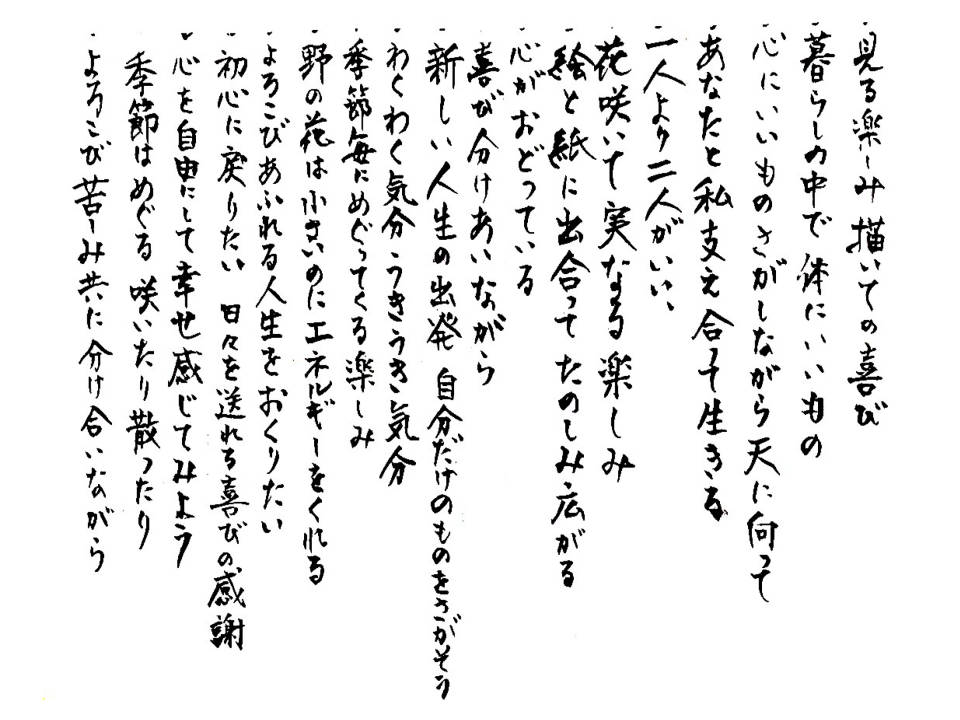 ・見る楽しみ 描いての喜び
・暮らしの中で体にいいもの
・心にいいものさがしながら天に向って
・あなたと私支え合って生きる
・一人より二人がいい、
・花咲いて実なる楽しみ
・絵と紙に出合ってたのしみ広がる
・心がおどっている
・喜び分けあいながら
・新しい人生の出発 自分だけのものをさがそう
・わくわく気分うきうき気分
・季節毎にめぐってくる楽しみ
・野の花は小さいのにエネルギーをくれる
・よろこびあふれる人生をおくりたい
・初心に戻りたい 日々を送れる喜びの感謝
・心を自由にして幸せ感じてみよう
・季節はめぐる 咲いたり散ったり
・よろこび苦しみ共に分け合いながら